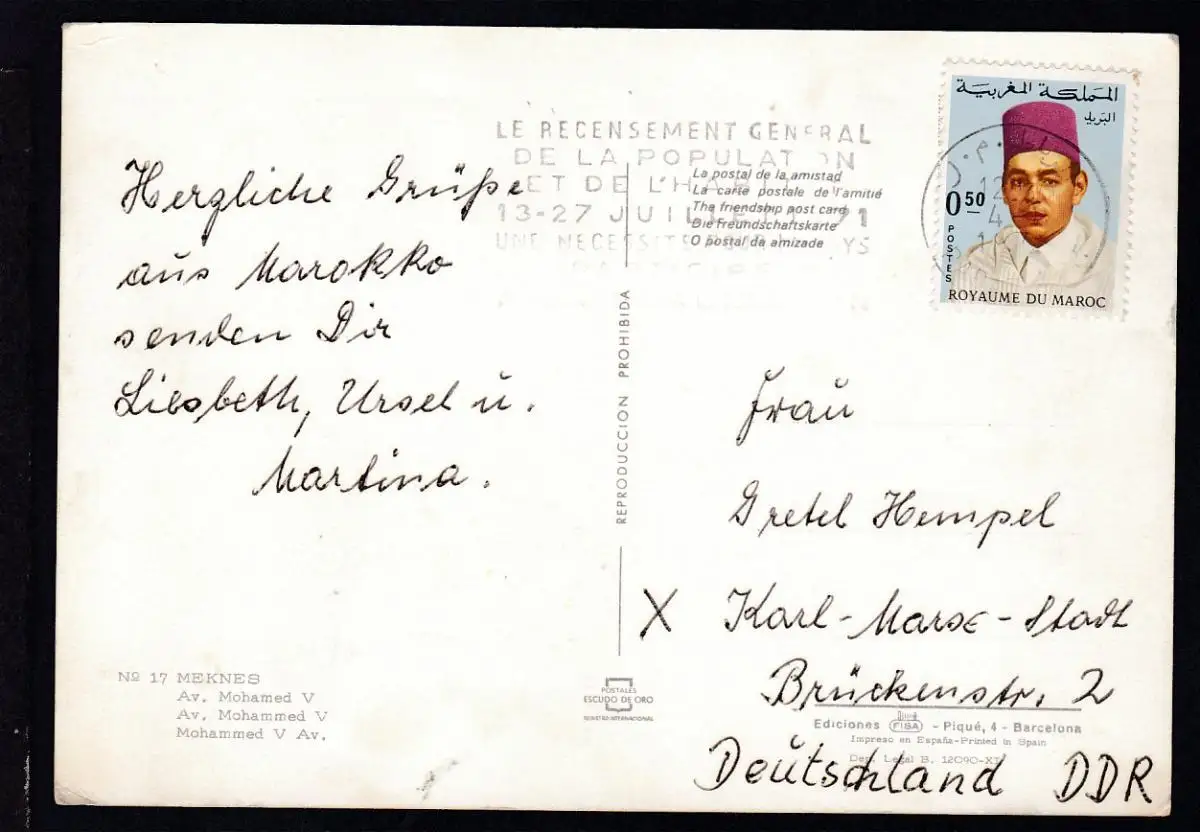 Herzliche Grüße
aus Marokko
senden Dir
Liesbeth, Ursel u.
Martina.
Nº 17 MEKNES
Av. Mohamed V
Av. Mohammed V
Mohammed V Av.
LE RECENSEMENT GENERAL
DE LA POPULAT ON
ET DE L'HA
13-27 JUILLET 71
UNE NECESSITE YS
La postal de la amistad
La carte postale de l'amitié
The friendship post card
Die Freundschaftskarte
O postal da amizade
REPRODUCCION PROHIBIDA
POSTALES
ESCUDO DE ORO
REGISTRO INTERNACIONAL
المملكة المغربية
البريد
0.50
POSTES
ROYAUME DU MAROC
Frau
Gretel Hempel
X Karl-Marx-Stadt
Brückenstr. 2
Ediciones FISA - Piqué, 4 - Barcelona
Impreso en España-Printed in Spain
Dep. Legal B. 12090-XI
Deutschland DDR